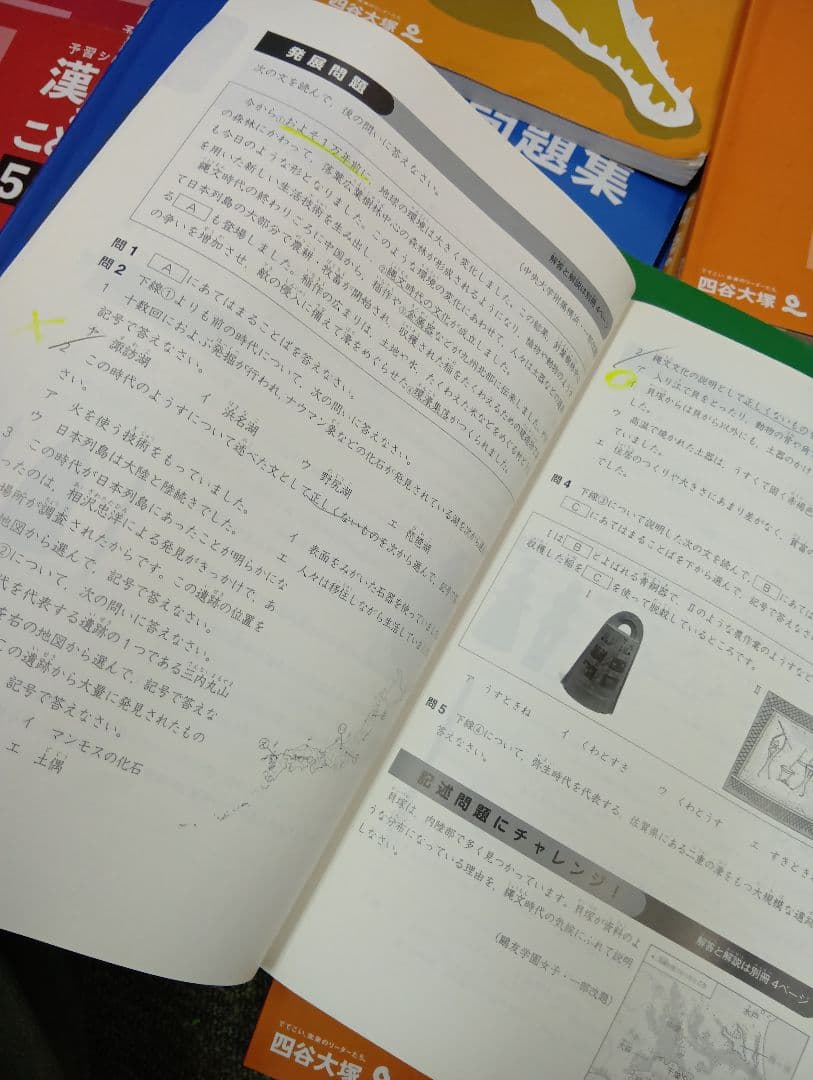 発展問題
次の文を読んで、後の問いに答えなさい。
(中央大学附属横浜・
解答と解説は別冊4ページ
今から①およそ1万年前に、地球の環境は大きく変化しました。この結果、針葉樹林
の森林にかわって、落葉広葉樹林中心の森林が形成されるようになり、植物や動物のよう
も今日のような形となりました。このような環境の変化にあわせて、人々は土器などの道
を用いた新しい生活技術を生み出し、②縄文時代の文化が成立しました。
縄文時代の終わりごろに中国から、稲作や③金属器などが九州北部に伝来しました。
て日本列島の大部分で農耕、牧畜が開始され、収穫された稲をたくわえるための
る A も登場しました。稲作の広まりは、土地や水、たくわえた米などをめぐる
の争いを増加させ、敵の侵入に備えて濠をめぐらせた④環濠集落がつくられました。
問1 A にあてはまることばを答えなさい。
問2 下線①よりも前の時代について、次の問いに答えなさい。
1 十数回におよぶ発掘が行われ、ナウマン象などの化石が発見されている湖を次から選
記号で答えなさい。
ア 諏訪湖 イ 浜名湖 ウ 野尻湖 エ 琵琶湖
2 この時代のようすについて述べた文として正しくないものを次から選んで、記号で
さい。
ア 火を使う技術をもっていました。 イ 表面をみがいた石器を使っていました
ウ 日本列島は大陸と陸続きでした。 エ 人々は移住しながら生活していま
3 この時代が日本列島にあったことが明らかにな
ったのは、相沢忠洋による発見がきっかけで、あ
場所が調査されたからです。この遺跡の位置を
地図から選んで、記号で答えなさい。
②について、次の問いに答えなさい。
代を代表する遺跡の1つである三内丸山
を右の地図から選んで、記号で答えな
この遺跡から大量に発見されたもの
記号で答えなさい。
イ マンモスの化石
エ 土偶
2 縄文文化の説明として正しくないもの
ア 入り江で貝をとったり、動物の骨や角
イ 貝塚からは貝がら以外にも、土器のかけ
した。
ウ 高温で焼かれた土器は、うすくて固く赤褐色
ていました。
エ 住居のつくりや大きさにあまり差がなく、貧富の
でした。
問4 下線③について説明した次の文を読んで、 B にあては
C にあてはまることばを下から選んで、記号で答えなさ
Ⅰは B とよばれる青銅器で、Ⅱのような農作業のようすなど
収穫した稲を C を使って脱穀しているところです。
Ⅰ
Ⅱ
ア うすときね イ くわとすき ウ くわとうす エ すきとき
問5 下線④について、弥生時代を代表する、佐賀県にある二重の濠をもつ大規模な遺
答えなさい。
記述問題にチャレンジ!
解答と解説は別冊4ページ
貝塚は、内陸部で多く見つかっています。貝塚が資料のよ
うな分布になっている理由を、縄文時代の気候にふれて説明
しなさい。
(鷗友学園女子・一部改題)
水戸
予習シ
漢
こと
5
問題集
四谷大塚
すてこい、未来のリーダーたち。
四谷大塚
すてこい、未来のリーダーたち。
四谷大塚